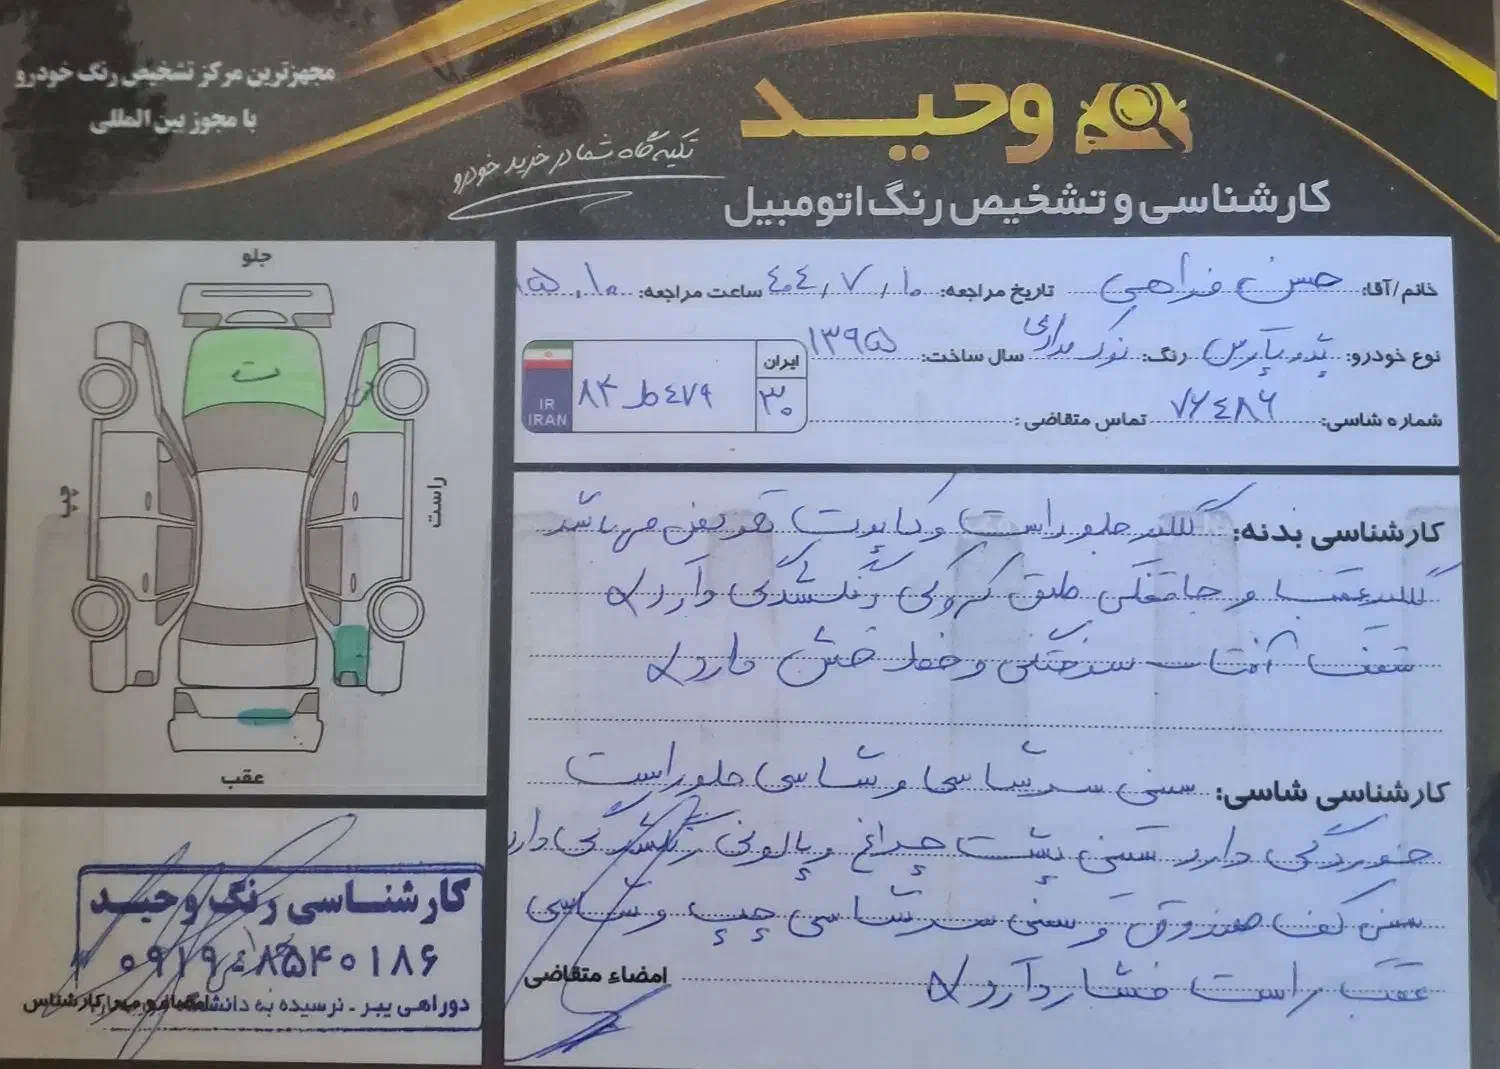 مجهزترین مرکز تشخیص رنگ خودرو
با مجوز بین المللی
وحید
تکیه گاه شما در خرید خودرو
کارشناسی و تشخیص رنگ اتومبیل
خانم/آقا: حسن تاریخ مراجعه: ۴۰۴/۷/۱۰ ساعت مراجعه:
نوع خودرو: پژو پارس رنگ: نوک مدادی سال ساخت: ۱۳۹۵
شماره شاسی: ۷۶۴۸۶ تماس متقاضی:
ایران
۳۰
۸۴ ط ۴۷۹
IR
IRAN
کارشناسی بدنه: گلگیر جلو راست و کاپوت تعویض میباشد
گلگیر عقب و جا قفلی طبق کروکی رنگ شدگی دارد
سقف آفتاب سوختگی و خط خش دارد
کارشناسی شاسی: سینی سرشاسی و شاسی جلو راست
خوردگی دارد سینی پشت چراغ و پالونی رنگ شدگی دارد
سینی کف صندوق و سینی سرشاسی چپ و شاسی
عقب راست فشار دارد
امضاء متقاضی
جلو
ت
ت
چپ
راست
عقب
کارشناسی رنگ وحید
۰۹۱۹۰۸۵۴۰۱۸۶
دوراهی یبر - نرسیده به دانشگاه
کارشناس